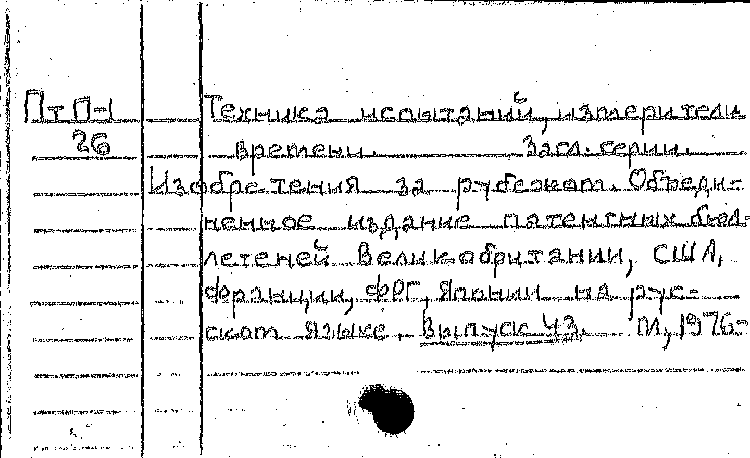 ПтП-1 Техника испытаний, измерители
26 времени. Загл. серии.
Изобретения за рубежом. Объеди-
ненное издание патентных бюл-
летеней Великобритании, США,
Франции, ФРГ, Японии на рус-
ском языке. Выпуск 43. М, 1976-